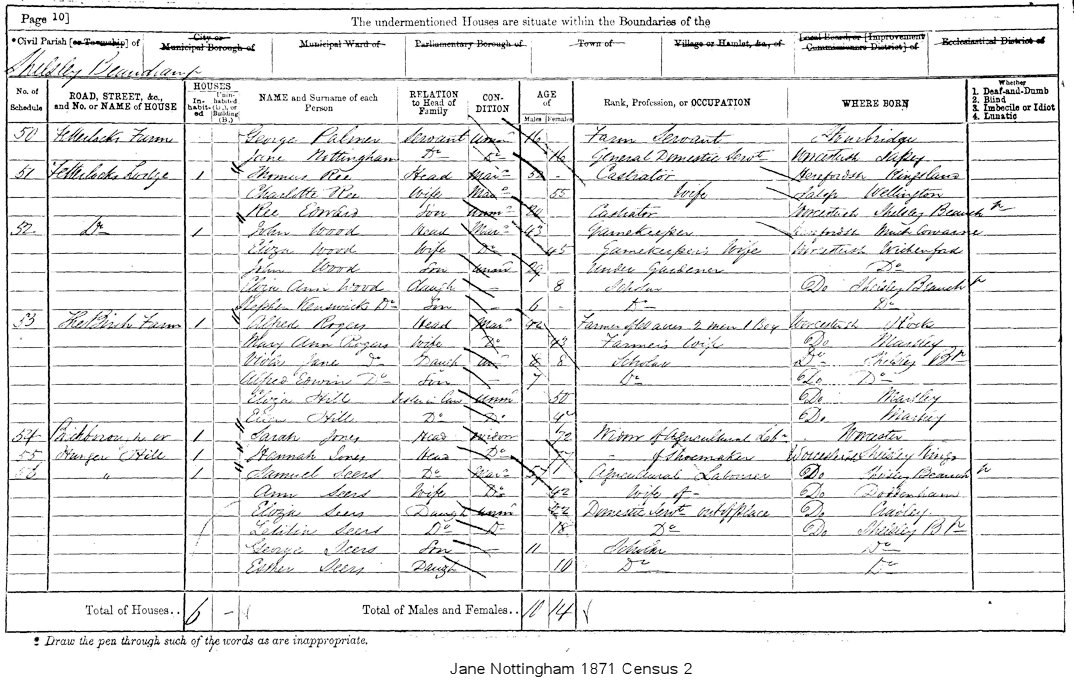 Page 10]
The undermentioned Houses are situate within the Boundaries of the
*Civil Parish [or Township] of
City or Municipal Borough of
Municipal Ward of
Parliamentary Borough of
Town of
Village or Hamlet, &c., of
Local Board, or [Improvement Commissioners District] of
Ecclesiastical District of
Shelsley Beauchamp
No. of Schedule
ROAD, STREET, &c., and No. or NAME of HOUSE
HOUSES
Inhabited
Uninhabited (U.), or Building (B.)
NAME and Surname of each Person
RELATION to Head of Family
CONDITION
AGE of
Males
Females
Rank, Profession, or OCCUPATION
WHERE BORN
Whether
1. Deaf-and-Dumb
2. Blind
3. Imbecile or Idiot
4. Lunatic
50 Fetterlocks Farm George Palmer Servant Unm 16 Farm Servant Stourbridge
Jane Nottingham Do Do 16 General Domestic Servt Worcestersh
51 Fetterlocks Lodge 1 Thomas Ree Head Mar 52 Castrator Herefordsh Kingsland
Charlotte Ree Wife Mar 55 Wife Salop Wellington
Ree Edward Son Unm Castrator Worcestersh Shelsley Beauch
52 Do 1 John Wood Head Mar 43 Gamekeeper Much Cowarne
Eliza Wood Wife Do 45 Gamekeeper's Wife Worcestersh Wichenford
John Wood Son Unm Under Gardener Do
Ann Wood daugh - 8 Scholar Do Shelsley Beauch
Stephen Do Son - 6 Do Do
53 The Birch Farm 1 Alfred Rogers Head Mar Farmer of acres 2 men 1 Boy Worcestersh
Mary Ann Rogers Wife Do 43 Farmer's Wife Do Martley
Jane Do Daugh 8 Scholar Do Shelsley Bp
Alfred Edwin Do Son - 7 Do Do Do
Eliza Hill Sister in law Unm 50 Do Martley
Hill Do Do Do Martley
54 1 Sarah Jones Head Widow 72 Widow of Agricultural Lab Worcester
55 Hill 1 Hannah Jones Head Do - of Shoemaker Worcestersh Shelsley Kings
" 1 Samuel Seers Do Mar 51 Agricultural Labourer Do Shelsley Beauch
Ann Seers Wife Do 42 Wife of - Do Doddenham
Eliza Seers Daugh Unm 22 Domestic Servt out of place Do
Letitia Seers Do D 18 Do Do Shelsley Bp
George Seers Son - 11 Scholar Do
Esther Seers Daugh 10 Do Do
Total of Houses.. 6 -
Total of Males and Females.. 10 14
* Draw the pen through such of the words as are inappropriate.
Jane Nottingham 1871 Census 2